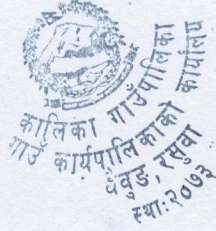 कालिका गाउँपालिका
गाउँ कार्यपालिकाको कार्यालय
धैवुङ, रसुवा
स्था:२०७३